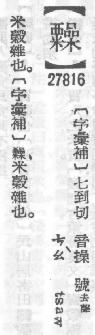 【】
27816
〔字彙補〕七到切 音操 號去聲
ㄘㄠˋ ts'aw
米穀雜也。〔字彙補〕、米穀雜也。